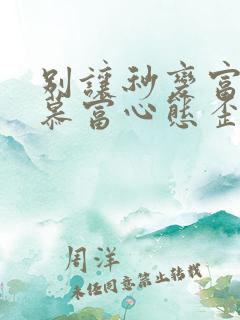 别让秒变富
慕富心态歪
周洋
未经同意禁止转载